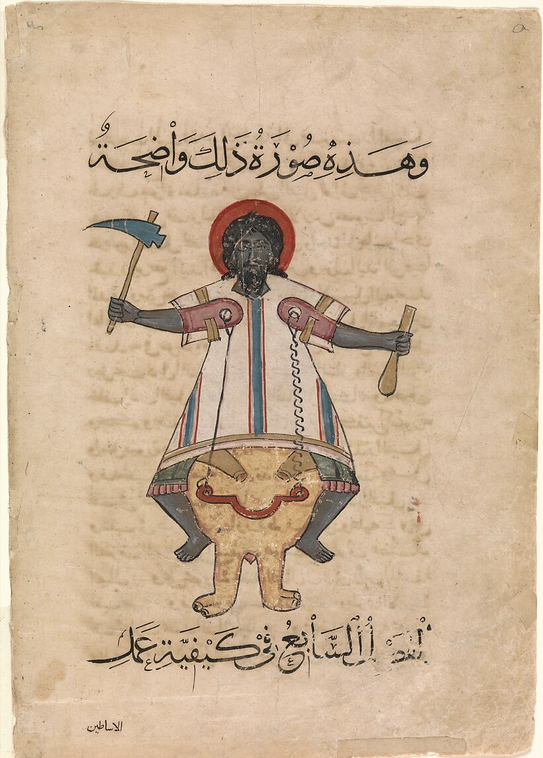 وَهَذِهِ صُوْرَةُ ذَلِكَ وَاْضِحَةٌ
الفصل السَّابعُ فِيْ كَيْفِيَّةِ عَمَلِ
الاساطين